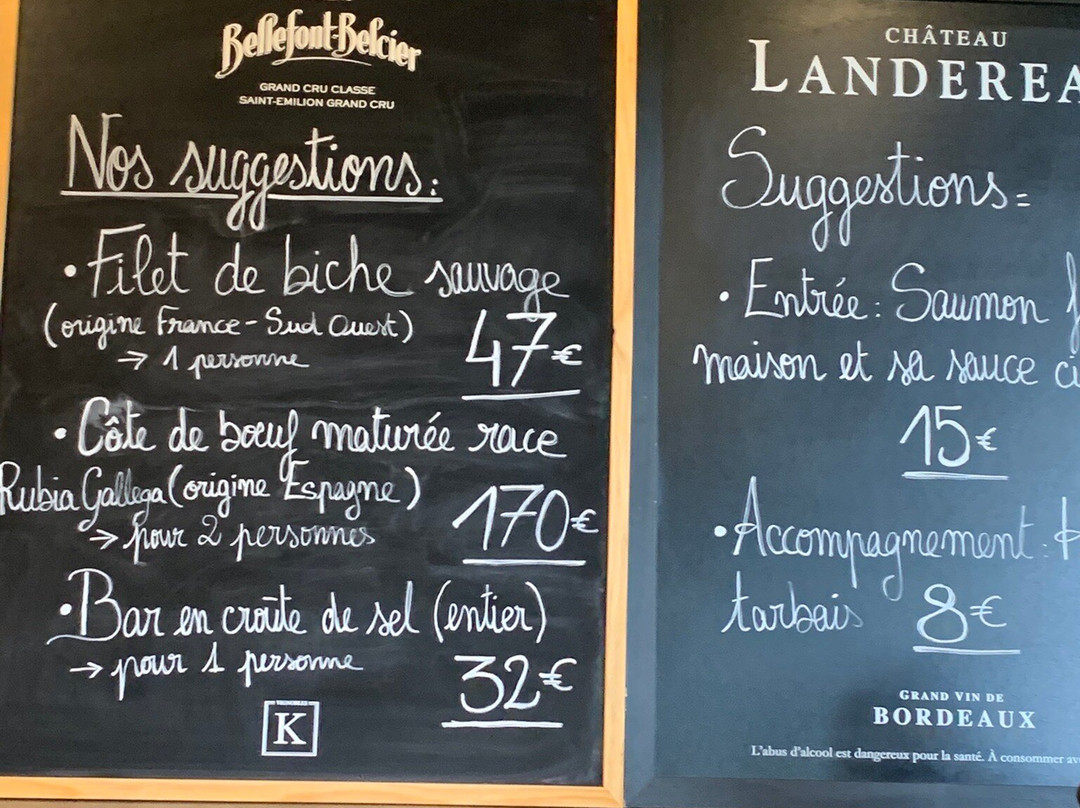 Bellefont-Belcier
GRAND CRU CLASSE
SAINT-EMILION GRAND CRU
Nos suggestions:
• Filet de biche sauvage
(origine France - Sud Ouest)
→ 1 personne
47€
• Côte de bœuf maturée race
Rubia Gallega (origine Espagne)
→ pour 2 personnes
170€
• Bar en croûte de sel (entier)
→ pour 1 personne
32€
VIGNOBLES
K
CHÂTEAU
LANDEREA
Suggestions=
• Entrée: Saumon
maison et sa sauce ci
15€
• Accompagnement:
tarbais 8€
GRAND VIN DE
BORDEAUX
L'abus d'alcool est dangereux pour la santé. À consommer av